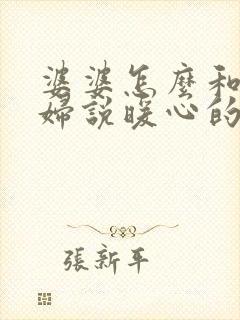 婆婆怎麼和
婦說暖心的
張新平